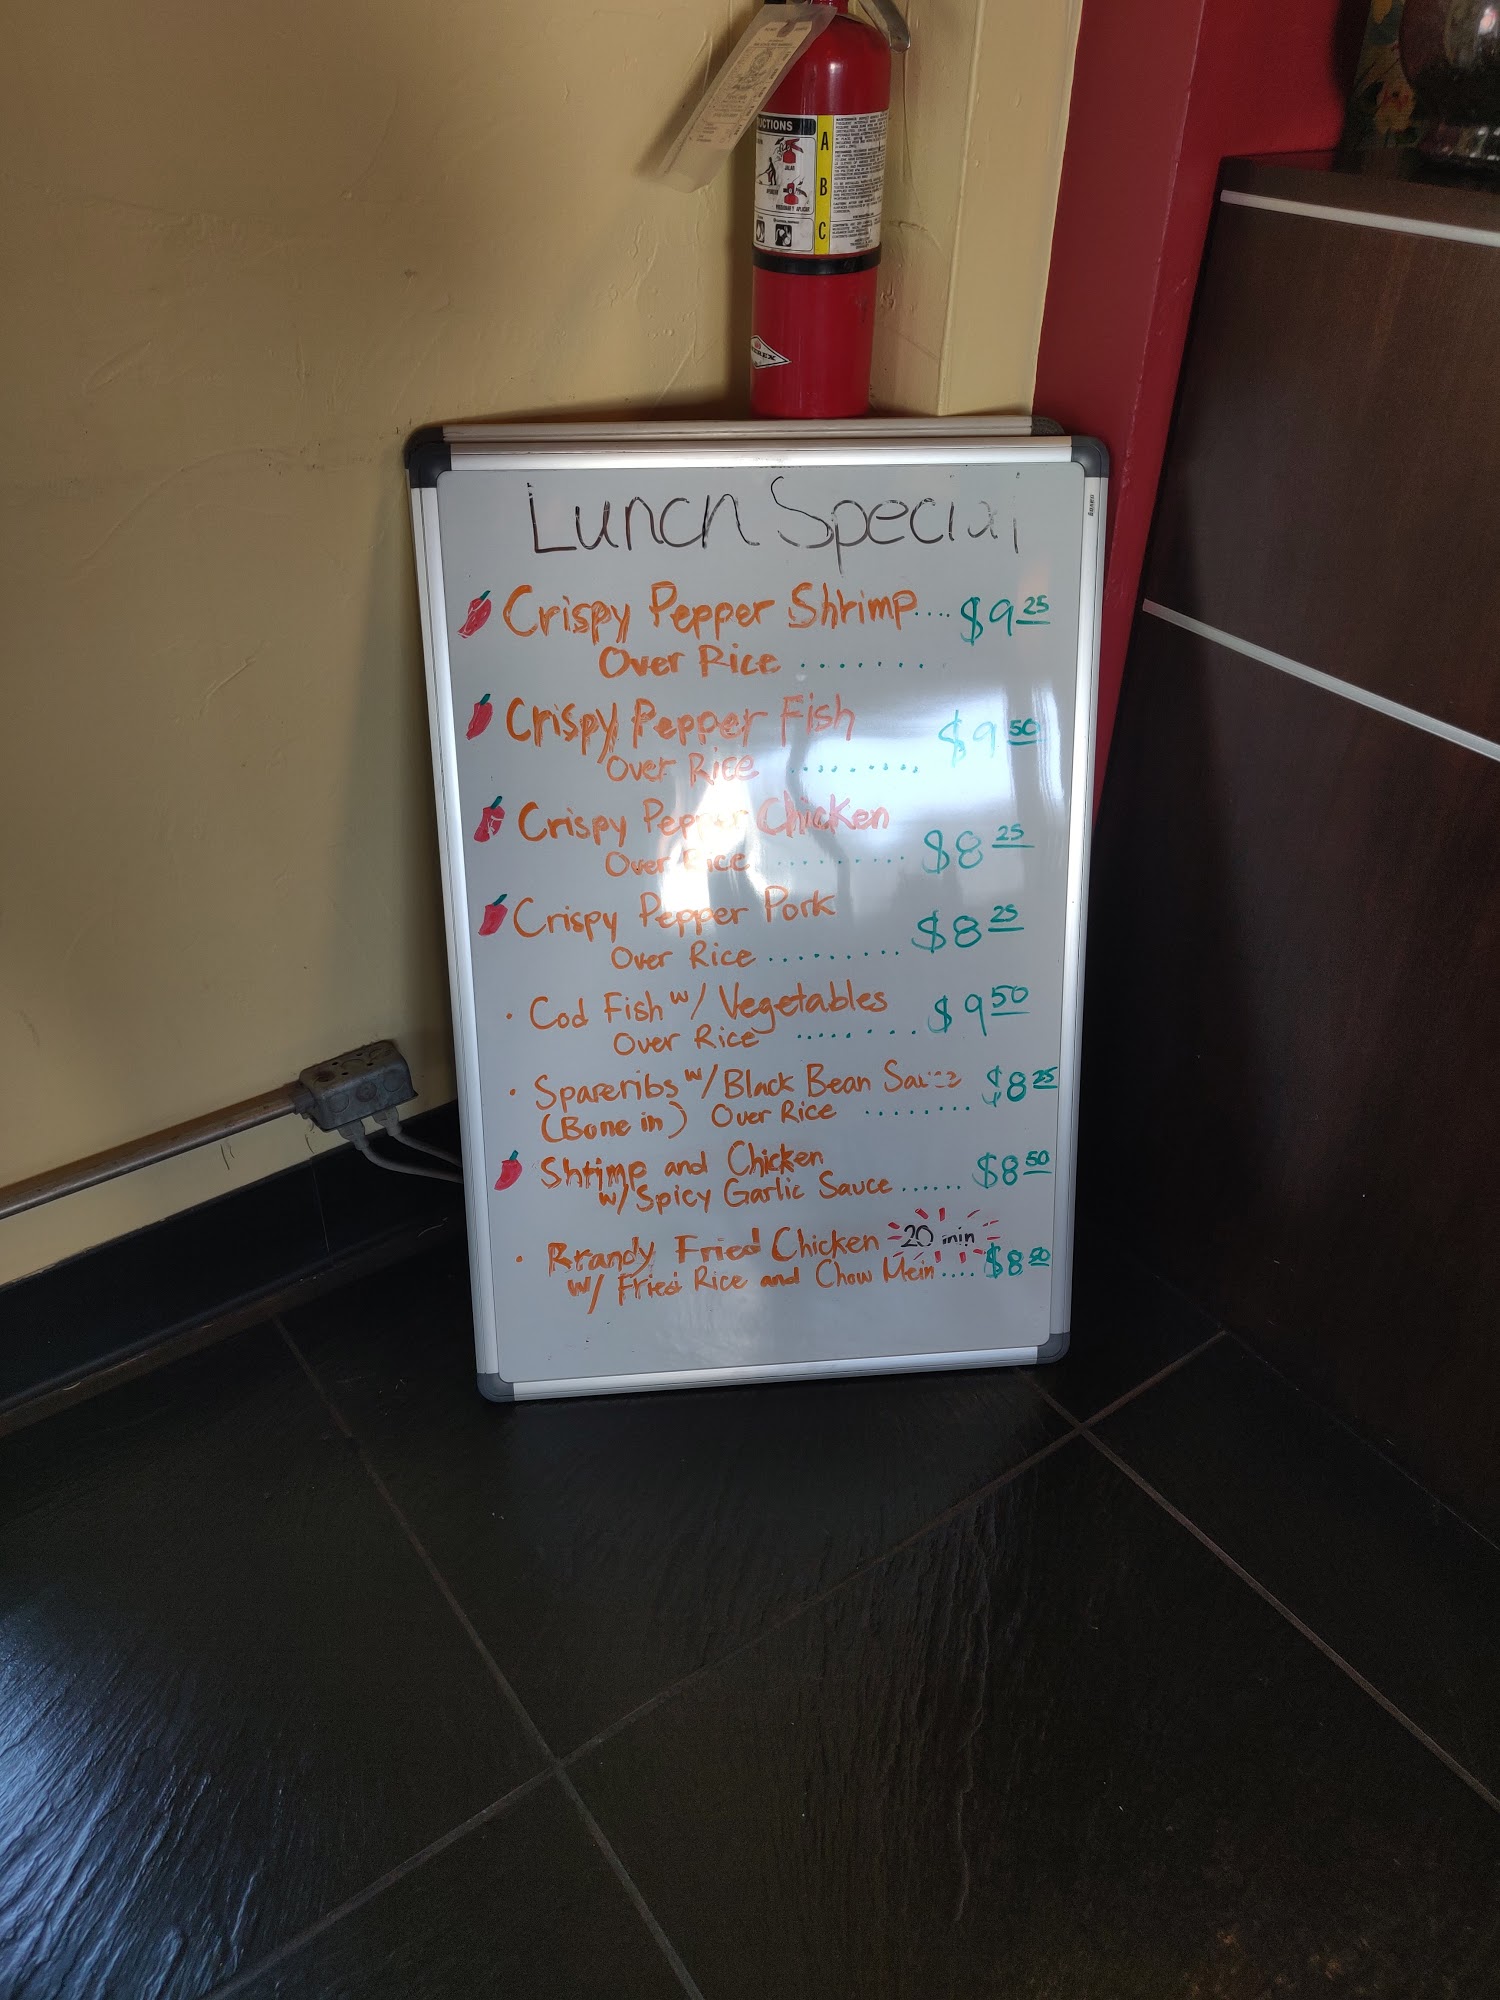 UCTIONS
A
JALAR
B
C
Lunch Special
Crispy Pepper Shrimp.... $9 25
Over Rice .......
Crispy Pepper Fish
Over Rice ........ $9 50
Crispy Pepper Chicken
Over Rice ......... $8 25
Crispy Pepper Pork
Over Rice ......... $8 25
• Cod Fish w/ Vegetables
Over Rice ........ $9 50
• Spareribs w/ Black Bean Sauce $8 25
(Bone in) Over Rice ........
Shrimp and Chicken
w/ Spicy Garlic Sauce ...... $8 50
• Brandy Fried Chicken 20 min
w/ Fried Rice and Chow Mein .... $8 50